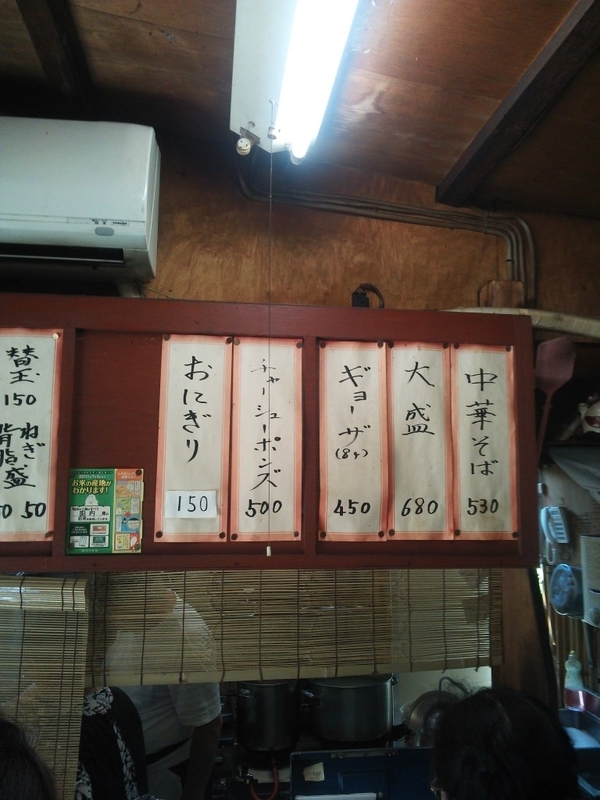 中華そば
530
大盛
680
ギョーザ
(8ヶ)
450
チャーシューポンズ
500
おにぎり
150
替玉
150
ねぎ
50
背脂盛
お米の産地が
わかります!
国内